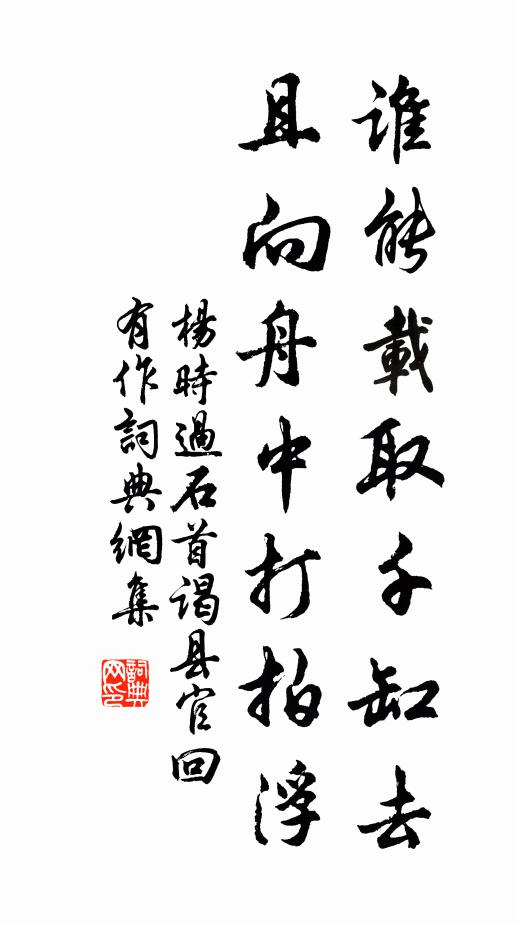 誰能載取千缸去
且向舟中打拍浮
楊時過石首謁县官回
有作詞典網集
詞典网印